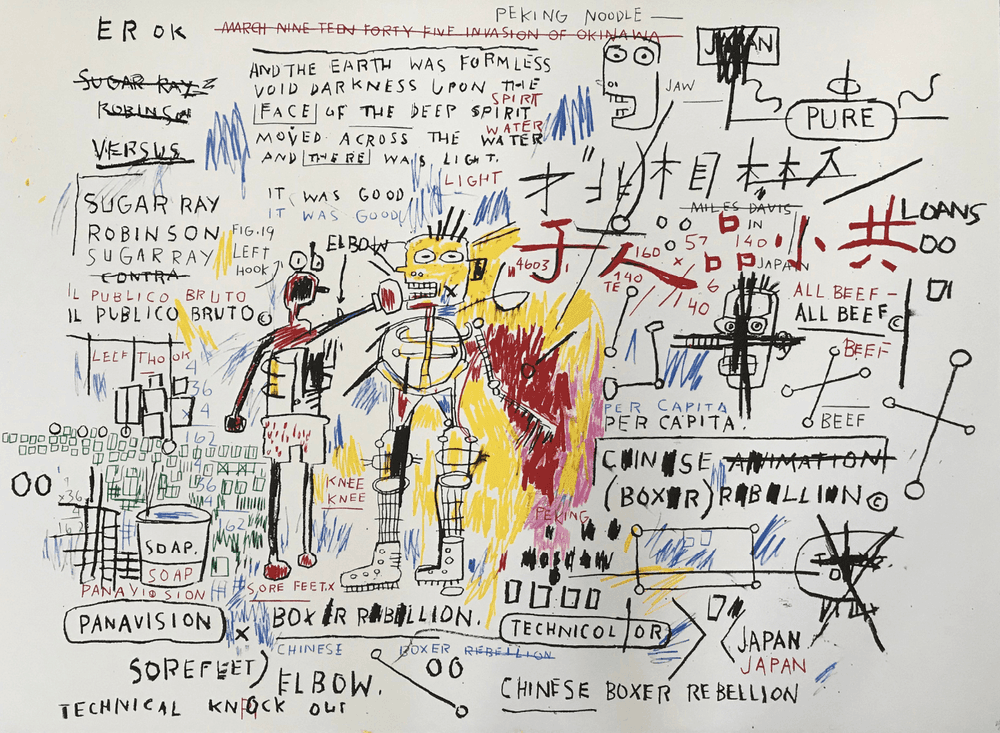 PEKING NOODLE
EROK
MARCH NINE TEEN FORTY FIVE INVASION OF OKINAWA
AND THE EARTH WAS FORMLESS
VOID DARKNESS UPON THE
SPIRIT
FACE OF THE DEEP SPIRIT
WATER
MOVED ACROSS THE WATER
AND THERE WAS LIGHT.
LIGHT
IT WAS GOOD
IT WAS GOOD
SUGAR RAY
ROBINSON
VERSUS
SUGAR RAY
ROBINSON
SUGAR RAY
CONTRA
IL PUBLICO BRUTO
IL PUBLICO BRUTO©
FIG.19
LEFT
HOOK
ELBOW
JAW
JAPAN
PURE
MILES DAVIS
IN
JAPAN
人品小共
LOANS
OO
4603
160
57
x
140
6
140
TE
40
ALL BEEF
ALL BEEF©
BEEF
BEEF
PER CAPITA
PER CAPITA.
CHINESE ANIMATION
(BOXER) REBELLION©
4
36
x 4
162
36
4
162
OO
1
x36
4
162
KNEE
KNEE
SOAP.
SOAP
PANAVISION
PANAVISION
SORE FEET.X
X
BOXER REBELLION.
CHINESE BOXER REBELLION
PEKING
MOSCOW
TECHNICOLOR
JAPAN
JAPAN
SOREFEET)
ELBOW.
OO
TECHNICAL KNOCK OUT
CHINESE BOXER REBELLION